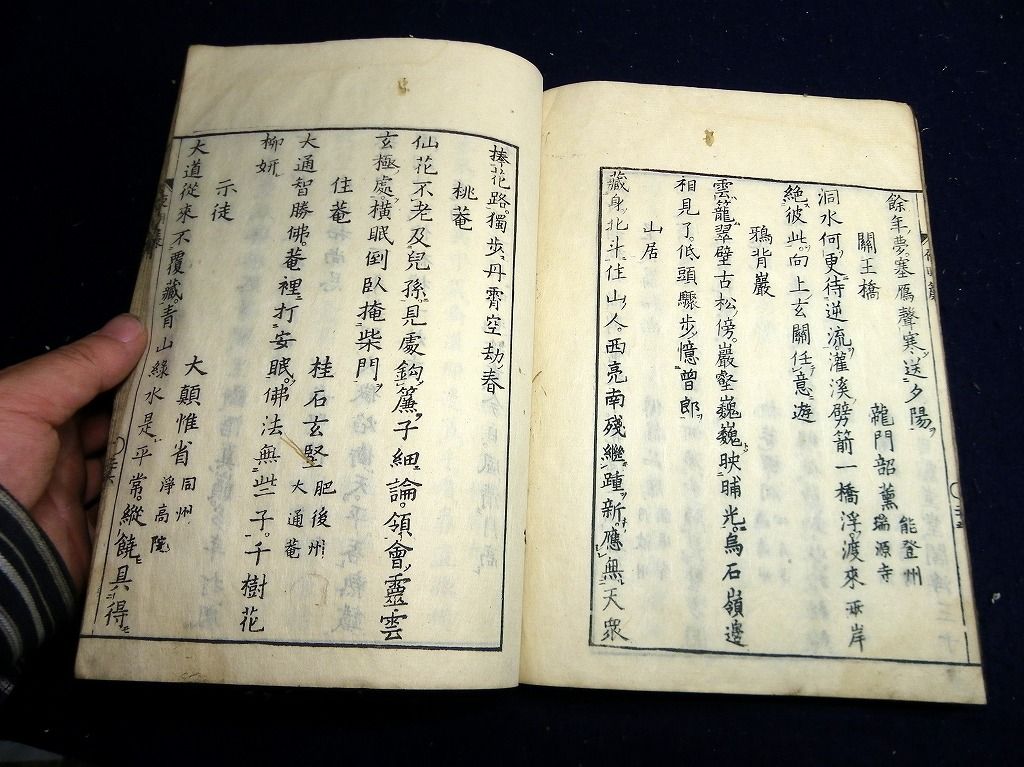 餘年夢。塞鴈聲寒送夕陽
關王橋
龍門韶薰 能登州 瑞源寺
洞水何更待逆流。灌溪劈箭一橋浮。渡來兩岸
絶彼此。向上玄關任意遊
鴉背巖
雲籠翠壁古松傍。巖壑巍巍映晡光。烏石嶺邊
相見了。低頭驟步憶曾郎
山居
藏身北斗住山人。西亮南殘繼踵新。應無天衆
捧花路。獨步丹霄空劫春
桃菴
仙花不老及兒孫。見處鈎簾子細論。領會靈雲
玄極處。橫眠倒臥掩柴門
住菴
桂石玄堅 肥後州 大通菴
大通智勝佛。菴裡打安眠。佛法無些子。千樹花
柳妍
示徒
大顛惟省 同州 淨高院
大道從來不覆藏。青山綠水是平常。縱饒具得